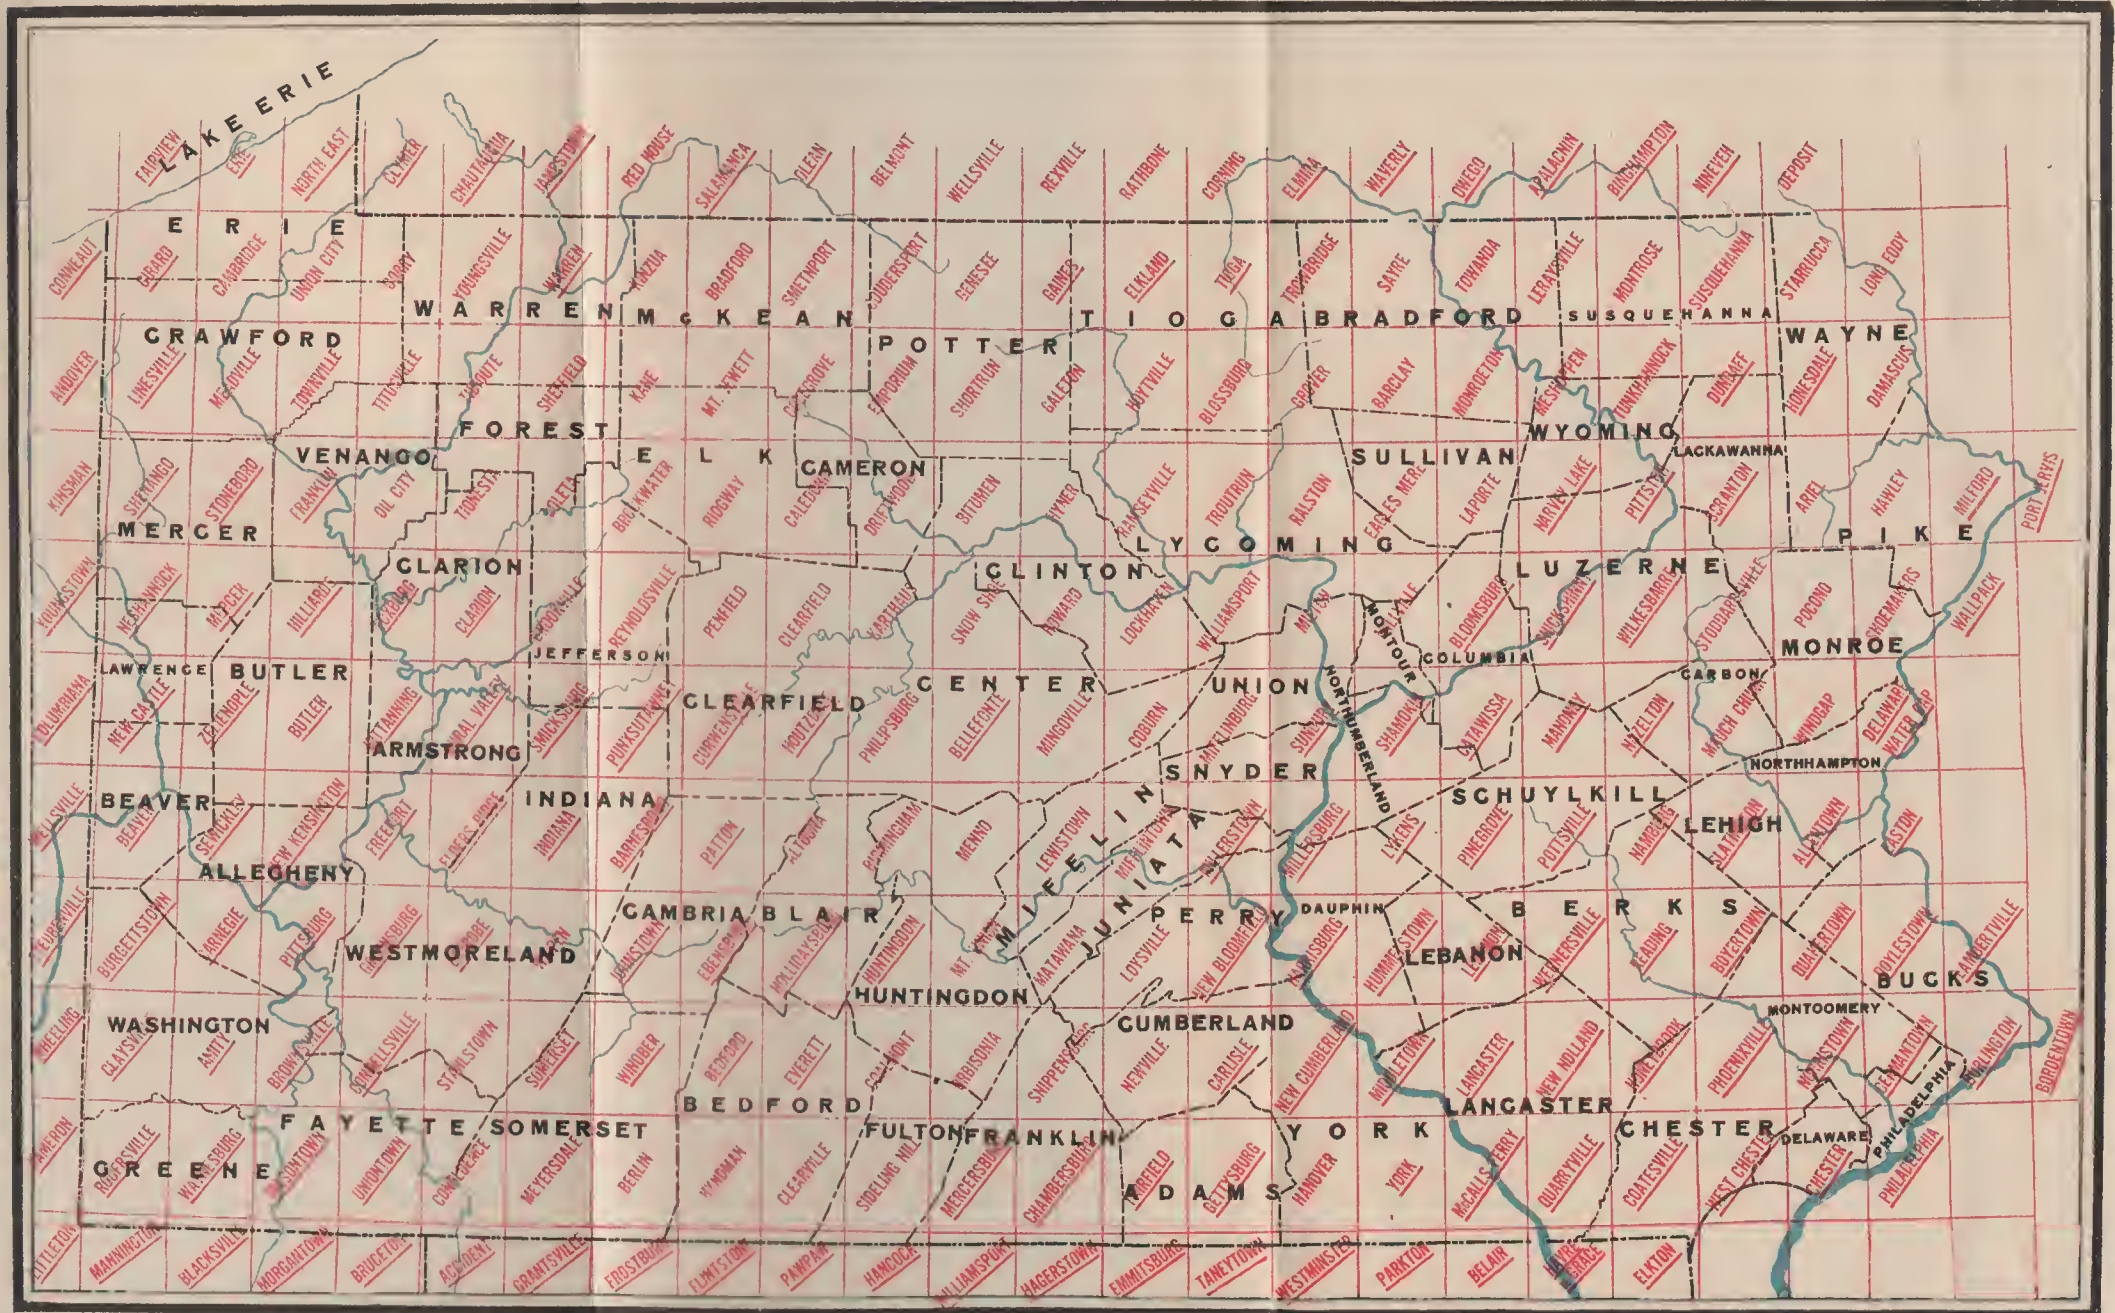 LAKE ERIE
FAIRVIEW
ERIE
NORTH EAST
CLYMER
CHAUTAUQUA
JAMESTOWN
RED HOUSE
SALAMANCA
OLEAN
BELMONT
WELLSVILLE
REXVILLE
RATHBONE
CORNING
ELMIRA
WAVERLY
OWEGO
APALACHIN
BINGHAMPTON
NINEVEH
DEPOSIT
ERIE
CONNEAUT
GIRARD
CAMBRIDGE
UNION CITY
CORRY
YOUNGSVILLE
WARREN
KINZUA
BRADFORD
SMETHPORT
COUDERSPORT
GENESEE
GAINES
ELKLAND
TIOGA
TROWBRIDGE
SAYRE
TOWANDA
LERAYSVILLE
MONTROSE
SUSQUEHANNA
STARRUCCA
LONG EDDY
WARREN
McKEAN
TIOGA
BRADFORD
SUSQUEHANNA
CRAWFORD
POTTER
WAYNE
ANDOVER
LINESVILLE
MEADVILLE
TOWNVILLE
TITUSVILLE
TIDIOUTE
SHEFFIELD
KANE
MT. JEWETT
EMPORIUM
SHORTRUN
GALETON
HOYTVILLE
BLOSSBURG
GROVER
BARCLAY
MONROETON
MESHOPPEN
TUNKHANNOCK
DUNDAFF
HONESDALE
DAMASCUS
FOREST
WYOMING
VENANGO
ELK
CAMERON
SULLIVAN
LACKAWANNA
KINSMAN
SHENANGO
STONEBORO
FRANKLIN
OIL CITY
TIONESTA
BROCKWATER
RIDGWAY
CALEDONIA
DRIFTWOOD
BITUMEN
HYNER
RAMSEYVILLE
TROUTRUN
RALSTON
EAGLES MERE
LAPORTE
HARVEY LAKE
PITTSTON
SCRANTON
ARIEL
HAWLEY
MILFORD
PORT JERVIS
MERCER
LYCOMING
PIKE
CLARION
CLINTON
LUZERNE
YOUNGSTOWN
NESHANNOCK
MERCER
HILLIARDS
CLARION
BROOKVILLE
REYNOLDSVILLE
PENFIELD
CLEARFIELD
KARTHAUS
SNOW SHOE
HOWARD
LOCKHAVEN
WILLIAMSPORT
MILTON
BLOOMSBURG
SHICKSHINNY
WILKESBARRE
STODDARDSVILLE
POCONO
SHOEMAKERS
WALLPACK
MONTOUR
LAWRENCE
BUTLER
JEFFERSON
COLUMBIA
MONROE
CLEARFIELD
CENTER
UNION
NORTHUMBERLAND
CARBON
COLUMBIANA
NEW CASTLE
ZELIENOPLE
BUTLER
KITTANNING
RURAL VALLEY
SMICKSBURG
PUNXSUTAWNEY
CURWENSVILLE
HOUTZDALE
PHILIPSBURG
BELLEFONTE
MINGOVILLE
COBURN
MIFFLINBURG
SUNBURY
SHAMOKIN
CATAWISSA
MAHONEY
HAZELTON
MAUCH CHUNK
WINDGAP
DELAWARE WATER GAP
ARMSTRONG
SNYDER
NORTHHAMPTON
BEAVER
INDIANA
SCHUYLKILL
LEHIGH
WELLSVILLE
BEAVER
SEWICKLEY
NEW KENSINGTON
FREEPORT
ELDERS RIDGE
INDIANA
BARNESBORO
PATTON
ALTOONA
BIRMINGHAM
MENNO
LEWISTOWN
MIFFLINTOWN
MILLERSTOWN
MILLERSBURG
LYKENS
PINEGROVE
POTTSVILLE
HAMBURG
SLATINGTON
ALLENTOWN
EASTON
ALLEGHENY
MIFFLIN
JUNIATA
CAMBRIA
BLAIR
PERRY
DAUPHIN
BERKS
STEUBENVILLE
BURGETTSTOWN
CARNEGIE
PITTSBURG
GREENSBURG
LATROBE
JOHNSTOWN
EBENSBURG
HOLLIDAYSBURG
HUNTINGDON
MATAWANA
LOYSVILLE
NEW BLOOMFIELD
HARRISBURG
HUMMELSTOWN
LEBANON
WERNERSVILLE
READING
BOYERTOWN
QUAKERTOWN
DOYLESTOWN
LAMBERTVILLE
WESTMORELAND
LEBANON
BUCKS
HUNTINGDON
MONTGOMERY
WASHINGTON
CUMBERLAND
WHEELING
CLAYSVILLE
AMITY
BROWNSVILLE
CONNELLSVILLE
STAHLSTOWN
SOMERSET
WINDBER
BEDFORD
EVERETT
COALMONT
ORBISONIA
SHIPPENSBURG
NEWVILLE
CARLISLE
NEW CUMBERLAND
MIDDLETOWN
LANCASTER
NEW HOLLAND
HONEYBROOK
PHOENIXVILLE
NORRISTOWN
GERMANTOWN
BURLINGTON
BORDENTOWN
PHILADELPHIA
BEDFORD
LANCASTER
FAYETTE
SOMERSET
FULTON
FRANKLIN
YORK
CHESTER
DELAWARE
CAMERON
ROGERSVILLE
WAYNESBURG
MASONTOWN
UNIONTOWN
CONFLUENCE
MEYERSDALE
BERLIN
HYNDMAN
CLEARVILLE
SIDELING HILL
MERCERSBURG
CHAMBERSBURG
FAIRFIELD
GETTYSBURG
HANOVER
YORK
McCALLS FERRY
QUARRYVILLE
COATESVILLE
WEST CHESTER
CHESTER
PHILADELPHIA
GREENE
ADAMS
LITTLETON
MANNINGTON
BLACKSVILLE
MORGANTOWN
BRUCETON
ACCIDENT
GRANTSVILLE
FROSTBURG
FLINTSTONE
PAWPAW
HANCOCK
WILLIAMSPORT
HAGERSTOWN
EMMITSBURG
TANEYTOWN
WESTMINSTER
PARKTON
BELAIR
HAVRE DE GRACE
ELKTON